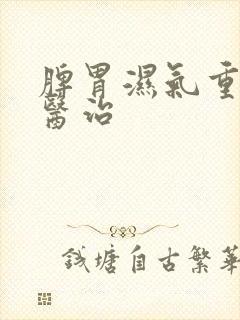 脾胃濕氣重
醫治
錢塘自古繁華